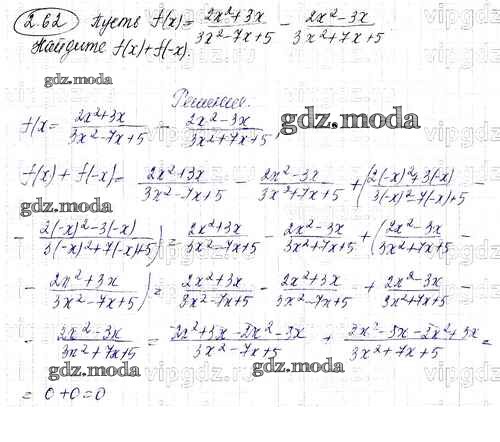 2.62 Пусть f(x) = (2x²+3x)/(3x²-7x+5) - (2x²-3x)/(3x²+7x+5)
Найдите f(x)+f(-x).
gdz.moda
Решение.
f(x = (2x²+3x)/(3x²-7x+5) - (2x²-3x)/(3x²+7x+5),
gdz.moda
f(x) + f(-x) = (2x²+3x)/(3x²-7x+5) - (2x²-3x)/(3x²+7x+5) + ((2(-x)²+3(-x))/(3(-x)²-7(-x)+5) -
gdz.moda
- (2(-x)²-3(-x))/(3(-x)²+7(-x)+5)) = (2x²+3x)/(3x²-7x+5) - (2x²-3x)/(3x²+7x+5) + ((2x²-3x)/(3x²+7x+5) -
- (2x²+3x)/(3x²-7x+5)) = (2x²+3x)/(3x²-7x+5) - (2x²+3x)/(3x²-7x+5) + (2x²-3x)/(3x²+7x+5) -
- (2x²-3x)/(3x²+7x+5) = (2x²+3x-2x²-3x)/(3x²-7x+5) + (2x²-3x-2x²+3x)/(3x²+7x+5) =
gdz.moda
gdz.moda
= 0+0=0
vipgdz.ru